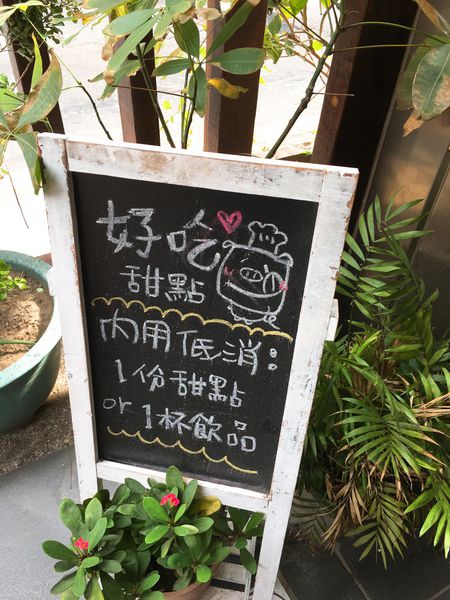 好吃
甜點
內用低消:
1份甜點
or 1杯飲品